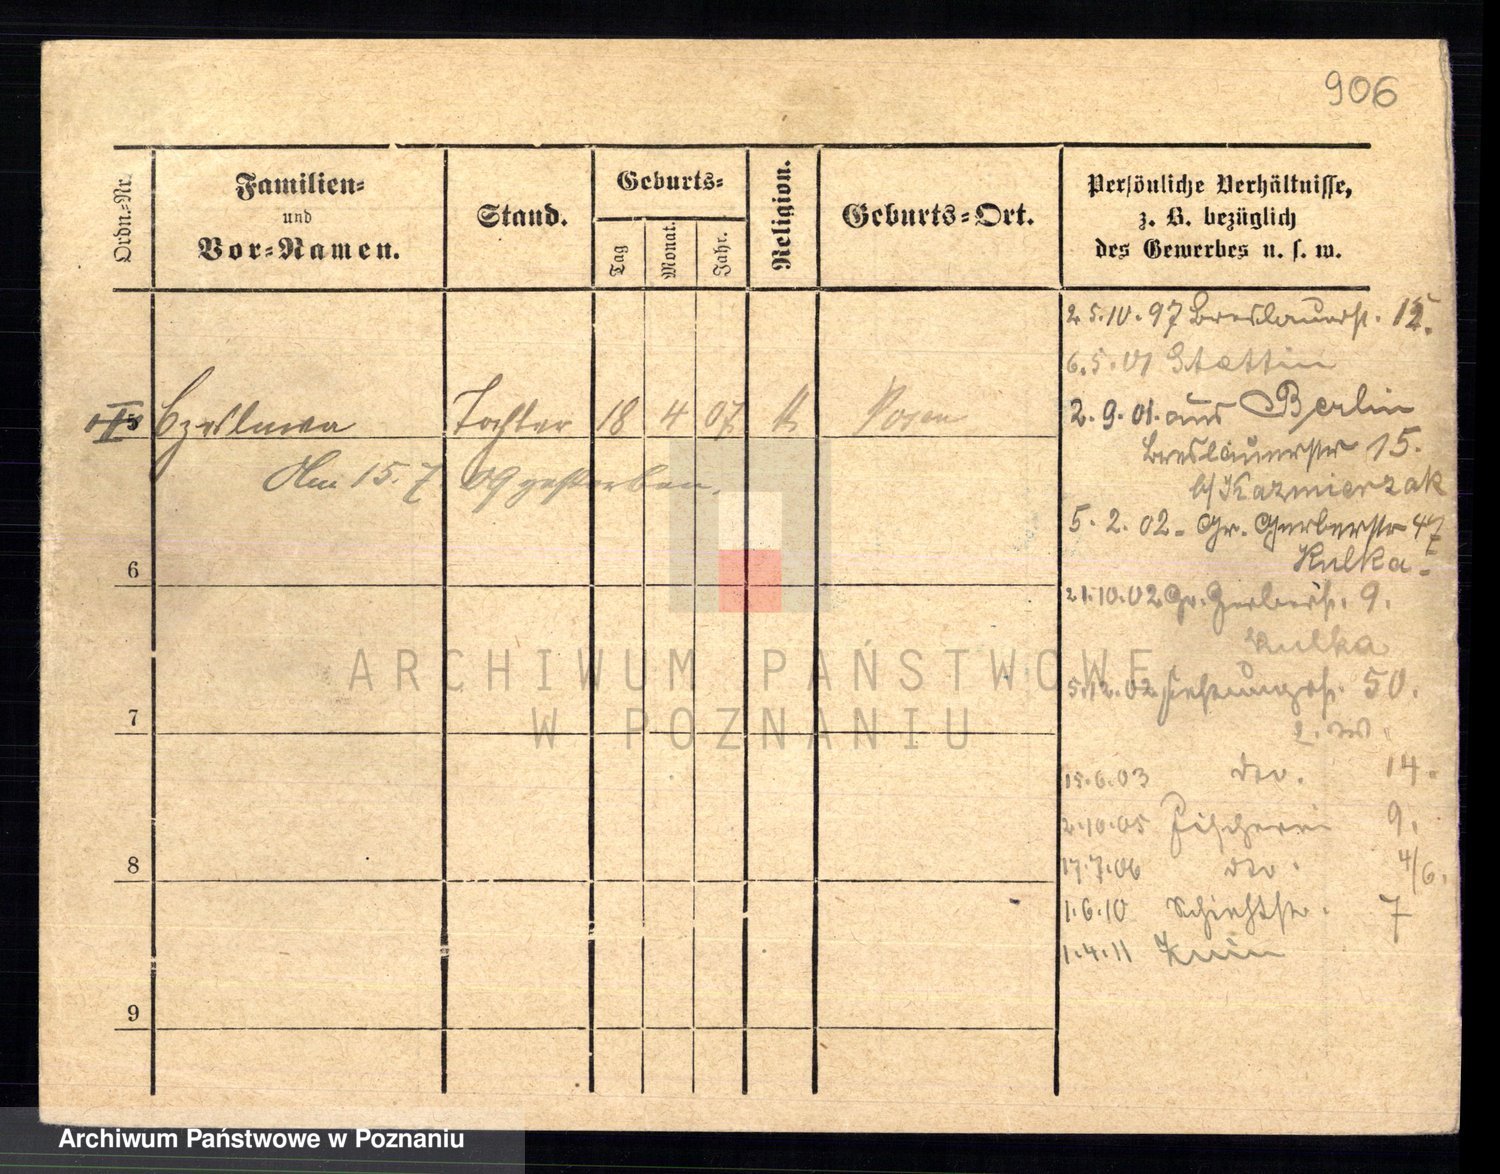 906
Ordn.-Nr.
Familien-
und
Vor-Namen.
Stand.
Geburts-
Tag
Monat.
Jahr.
Religion.
Geburts-Ort.
Persönliche Verhältnisse,
z. B. bezüglich
des Gewerbes u. s. w.
25.10.97 Breslauerst. 15.
6.5.01 Stettin
5 Czeslawa Tochter 18 4 07 k Posen
2.9.01. aus Berlin
Breslauerstr 15.
b/Kazmierzak
Am 15.7 09 gestorben.
5.2.02. Gr. Gerberstr 47
Kulka.
6
21.10.02 Gr. Gerberst. 9.
Kulka
5.12.02 50.
7
15.6.03 dto. 14.
2.10.05 Fischerei 9.
8
17.7.06 dto. 4/6.
1.6.10 7
1.4.11
9
ARCHIWUM PAŃSTWOWE
W POZNANIU
Archiwum Państwowe w Poznaniu